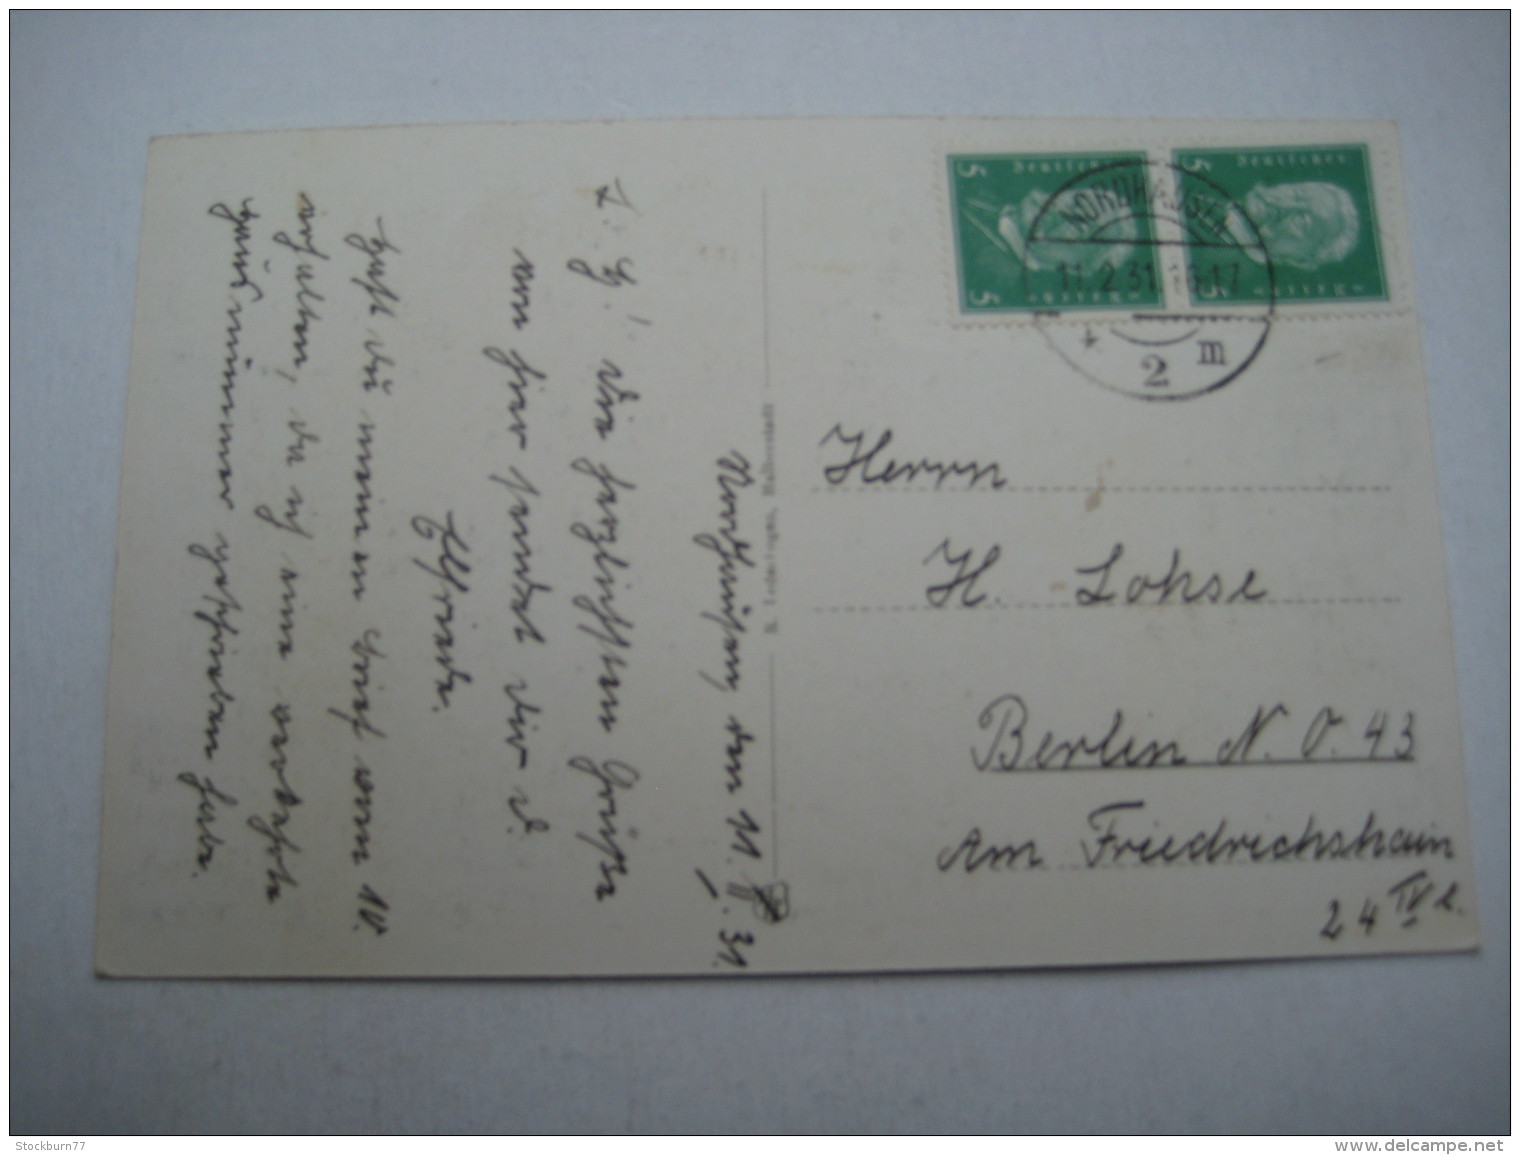 Nordhausen, den 11. II. 31.
L. H.! Die herzlichsten Grüße
von hier sendet Dir d.
Elfriede.
Hast Du meinen Brief vom 10.
erhalten, da ich eine verkehrte
Hausnummer geschrieben habe.
Halberstadt
Deutsches
5
5
Deutsches
5
5
NORDHAUSEN
11.2.31.16-17
* 2 m
Herrn
H. Lohse
Berlin N. O. 43
Am Friedrichshain
24 IV l.
Stockburn77
www.delcampe.net